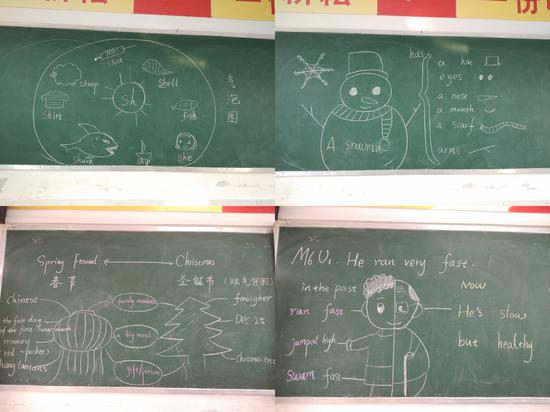 shot
sheep
shell
Sh
shirt
fish
shark
ship
she
气泡图
has
a hat
eyes
a nose
a mouth
a scarf
arms
A snowman
Spring Festival
Christmas
春节
圣诞节 (双气泡图)
Chinese
family members
foreigner
the first day
of the first lunar month
a big meal
Dec 25
money
red packet)
gift/present
Christmas tree
hang lanterns
M6 U1. He ran very fast.
in the past
Now
ran fast
He's slow
jumped high
but healthy
Swam fast